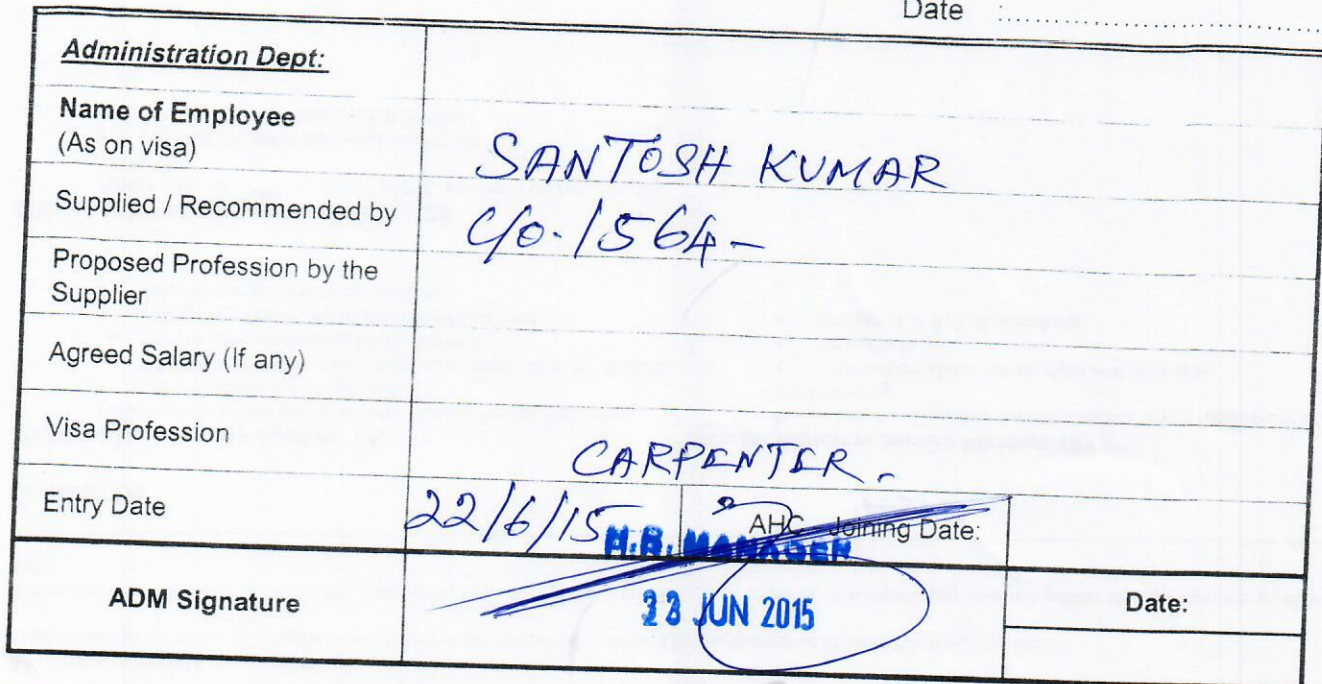 Date
Administration Dept:
Name of Employee
(As on visa)
SANTOSH KUMAR
Supplied / Recommended by
C/o. 1564-
Proposed Profession by the
Supplier
Agreed Salary (If any)
Visa Profession
CARPENTER.
Entry Date
22/6/15
AHC - Joining Date:
H.R. MANAGER
ADM Signature
23 JUN 2015
Date: